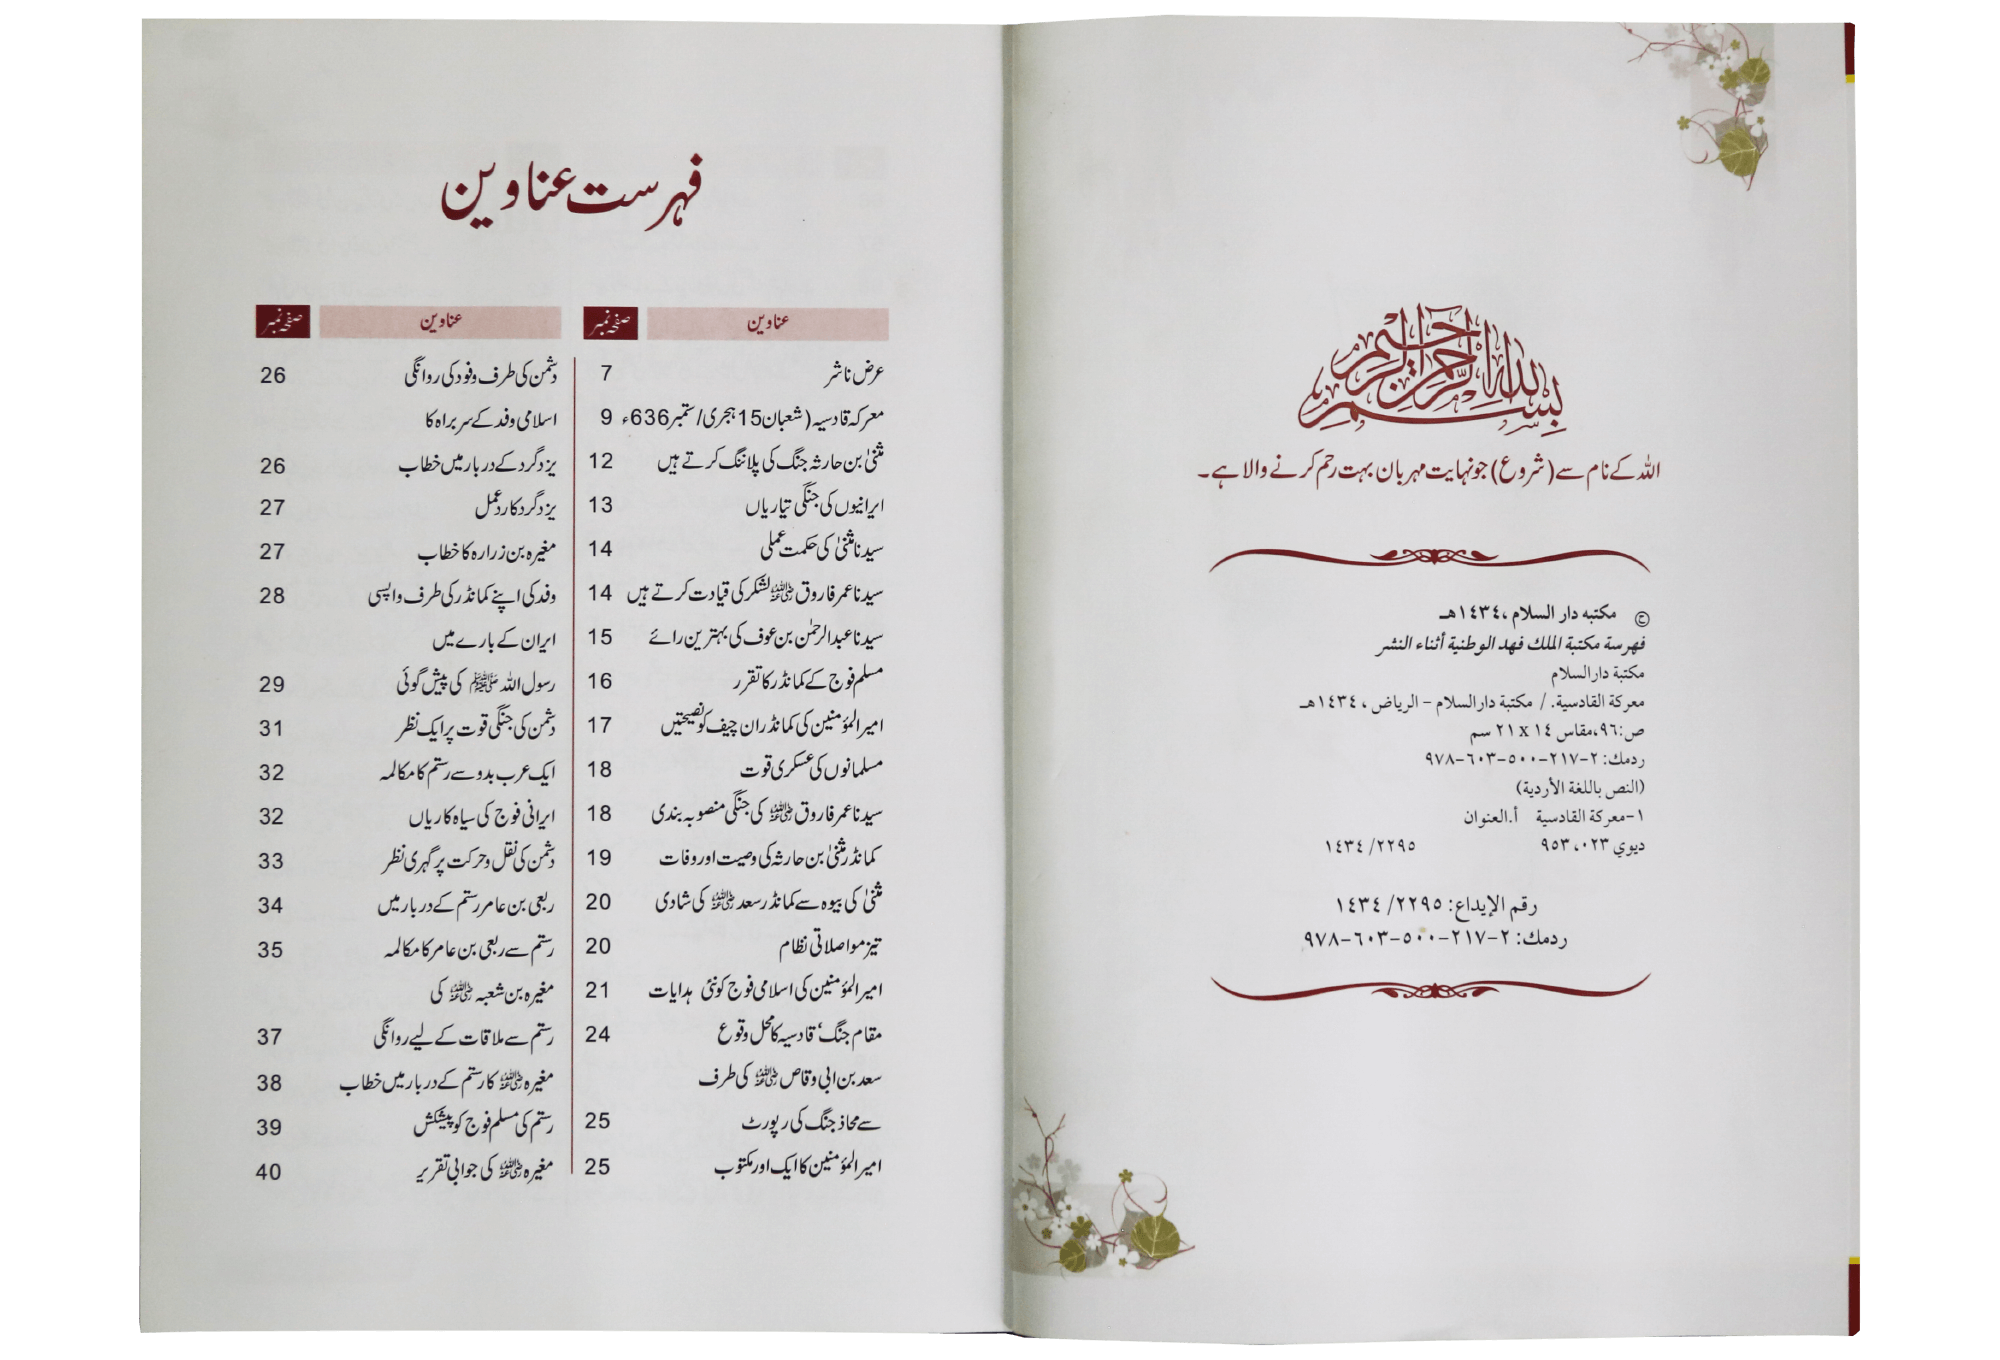 بِسْمِ اللهِ الرَّحْمٰنِ الرَّحِيْمِ
اللہ کے نام سے (شروع) جو نہایت مہربان بہت رحم کرنے والا ہے۔
ⓒ مكتبه دار السلام ،١٤٣٤هـ
فهرسة مكتبة الملك فهد الوطنية أثناء النشر
مكتبة دارالسلام
معركة القادسية. / مكتبة دارالسلام - الرياض ، ١٤٣٤هـ
ص:٩٦،مقاس ١٤ x ٢١ سم
ردمك: ٢-٢١٧-٥٠٠-٦٠٣-٩٧٨
(النص باللغة الأردية)
١-معركة القادسية أ.العنوان
ديوي ٩٥٣،٠٢٣ ١٤٣٤/٢٢٩٥
رقم الإيداع: ١٤٣٤/٢٢٩٥
ردمك: ٢-٢١٧-٥٠٠-٦٠٣-٩٧٨
فہرست عناوین
عناوین صفحہ نمبر
عرض ناشر 7
معرکہ قادسیہ (شعبان 15 ہجری/ستمبر 636ء 9
مثنیٰ بن حارثہ جنگ کی پلاننگ کرتے ہیں 12
ایرانیوں کی جنگی تیاریاں 13
سیدنا مثنیٰ کی حکمت عملی 14
سیدنا عمر فاروق ؓ لشکر کی قیادت کرتے ہیں 14
سیدنا عبدالرحمٰن بن عوف کی بہترین رائے 15
مسلم فوج کے کمانڈر کا تقرر 16
امیر المؤمنین کی کمانڈر ان چیف کو نصیحتیں 17
مسلمانوں کی عسکری قوت 18
سیدنا عمر فاروق ؓ کی جنگی منصوبہ بندی 18
کمانڈر مثنیٰ بن حارثہ کی وصیت اور وفات 19
مثنیٰ کی بیوہ سے کمانڈر سعد ؓ کی شادی 20
تیز مواصلاتی نظام 20
امیر المؤمنین کی اسلامی فوج کو نئی ہدایات 21
مقام جنگ' قادسیہ کا محل وقوع 24
سعد بن ابی وقاص ؓ کی طرف
سے محاذ جنگ کی رپورٹ 25
امیر المؤمنین کا ایک اور مکتوب 25
عناوین صفحہ نمبر
دشمن کی طرف وفود کی روانگی 26
اسلامی وفد کے سربراہ کا
یزدگرد کے دربار میں خطاب 26
یزدگرد کا ردعمل 27
مغیرہ بن زرارہ کا خطاب 27
وفد کی اپنے کمانڈر کی طرف واپسی 28
ایران کے بارے میں
رسول اللہ ﷺ کی پیش گوئی 29
دشمن کی جنگی قوت پر ایک نظر 31
ایک عرب بدو سے رستم کا مکالمہ 32
ایرانی فوج کی سیاہ کاریاں 32
دشمن کی نقل و حرکت پر گہری نظر 33
ربعی بن عامر رستم کے دربار میں 34
رستم سے ربعی بن عامر کا مکالمہ 35
مغیرہ بن شعبہ ؓ کی
رستم سے ملاقات کے لیے روانگی 37
مغیرہ ؓ کا رستم کے دربار میں خطاب 38
رستم کی مسلم فوج کو پیشکش 39
مغیرہ ؓ کی جوابی تقریر 40